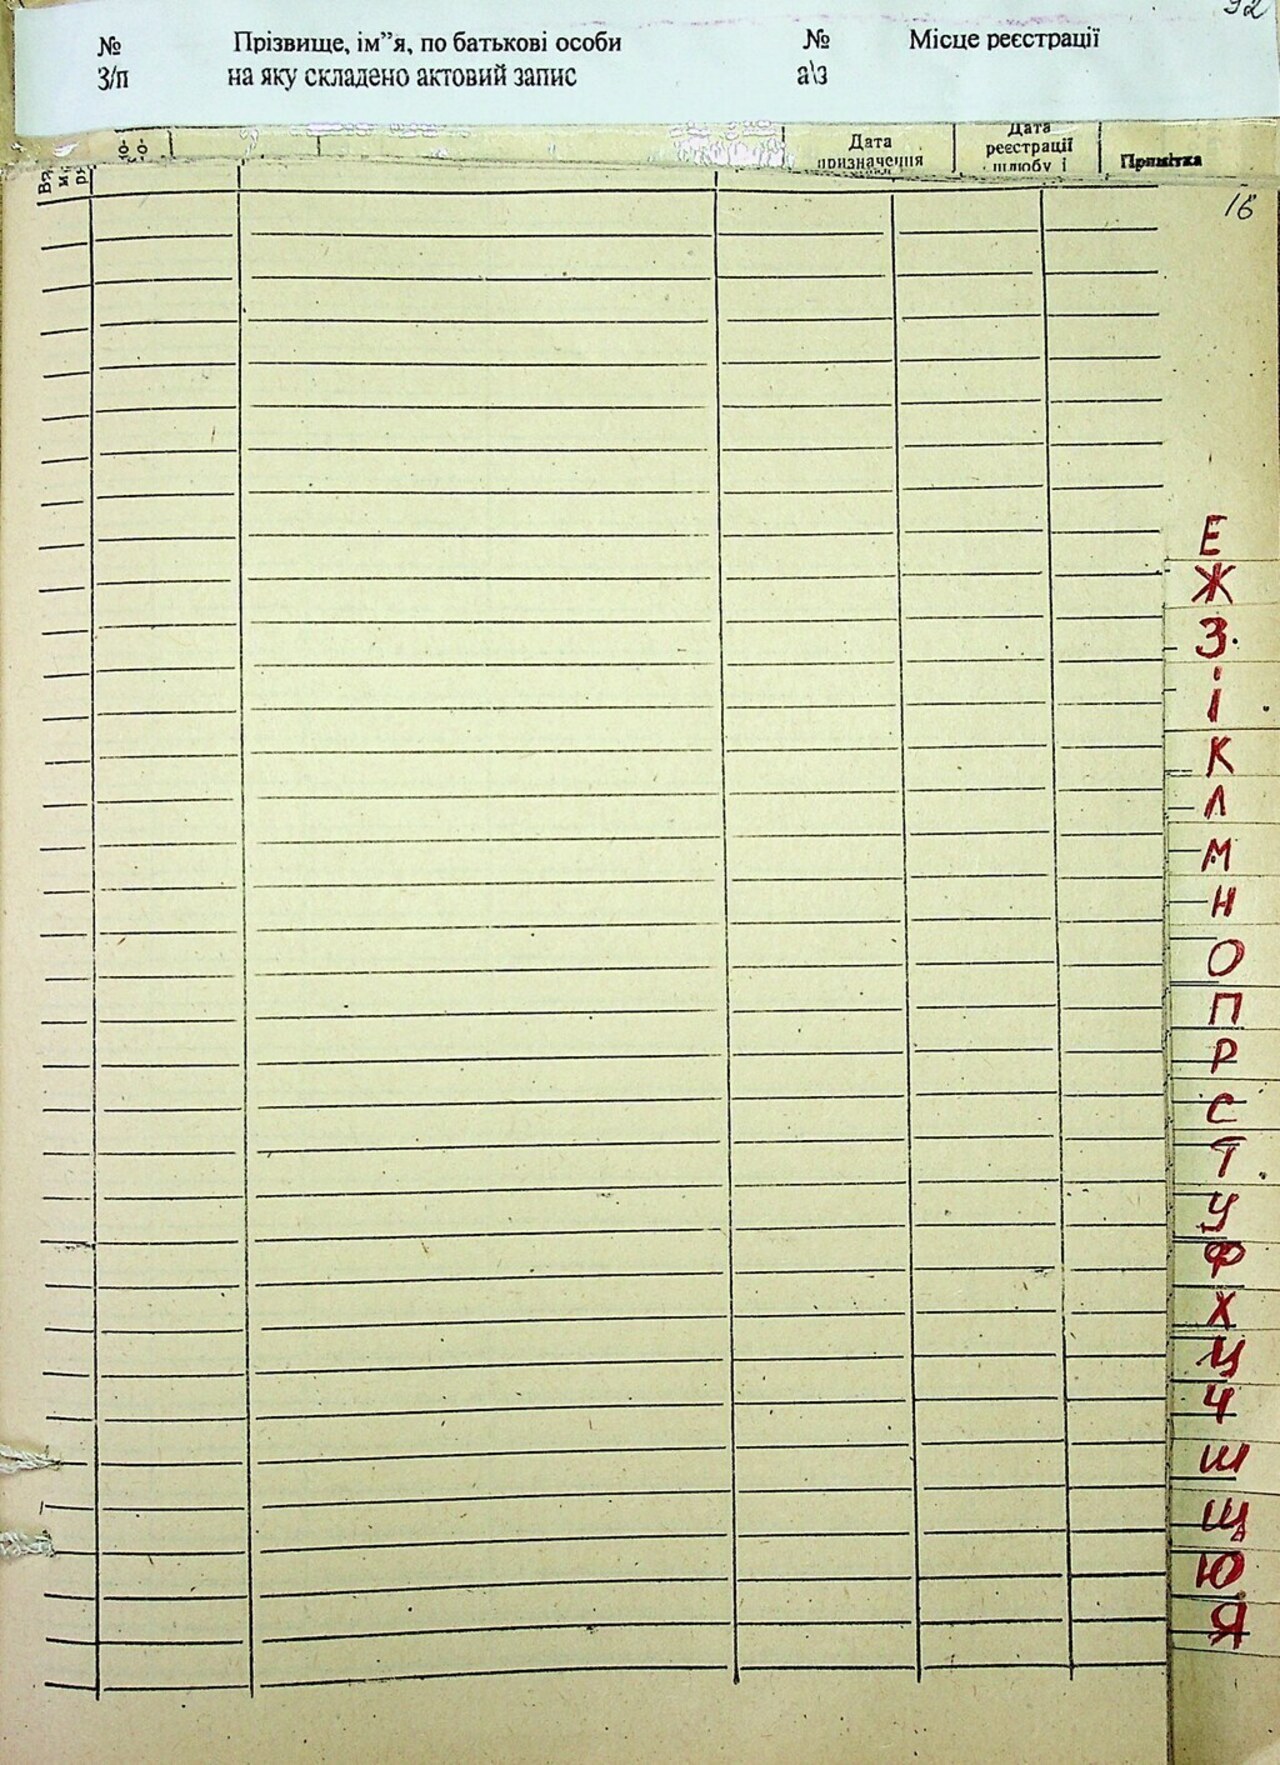 92
№ Прізвище, ім”я, по батькові особи № Місце реєстрації
З/п на яку складено актовий запис а\з
Дата
призначення
Дата
реєстрації
шлюбу і
Примітка
16
Е
Ж
З
І
К
Л
М
Н
О
П
Р
С
Т
У
Ф
Х
Ц
Ч
Ш
Щ
Ю
Я